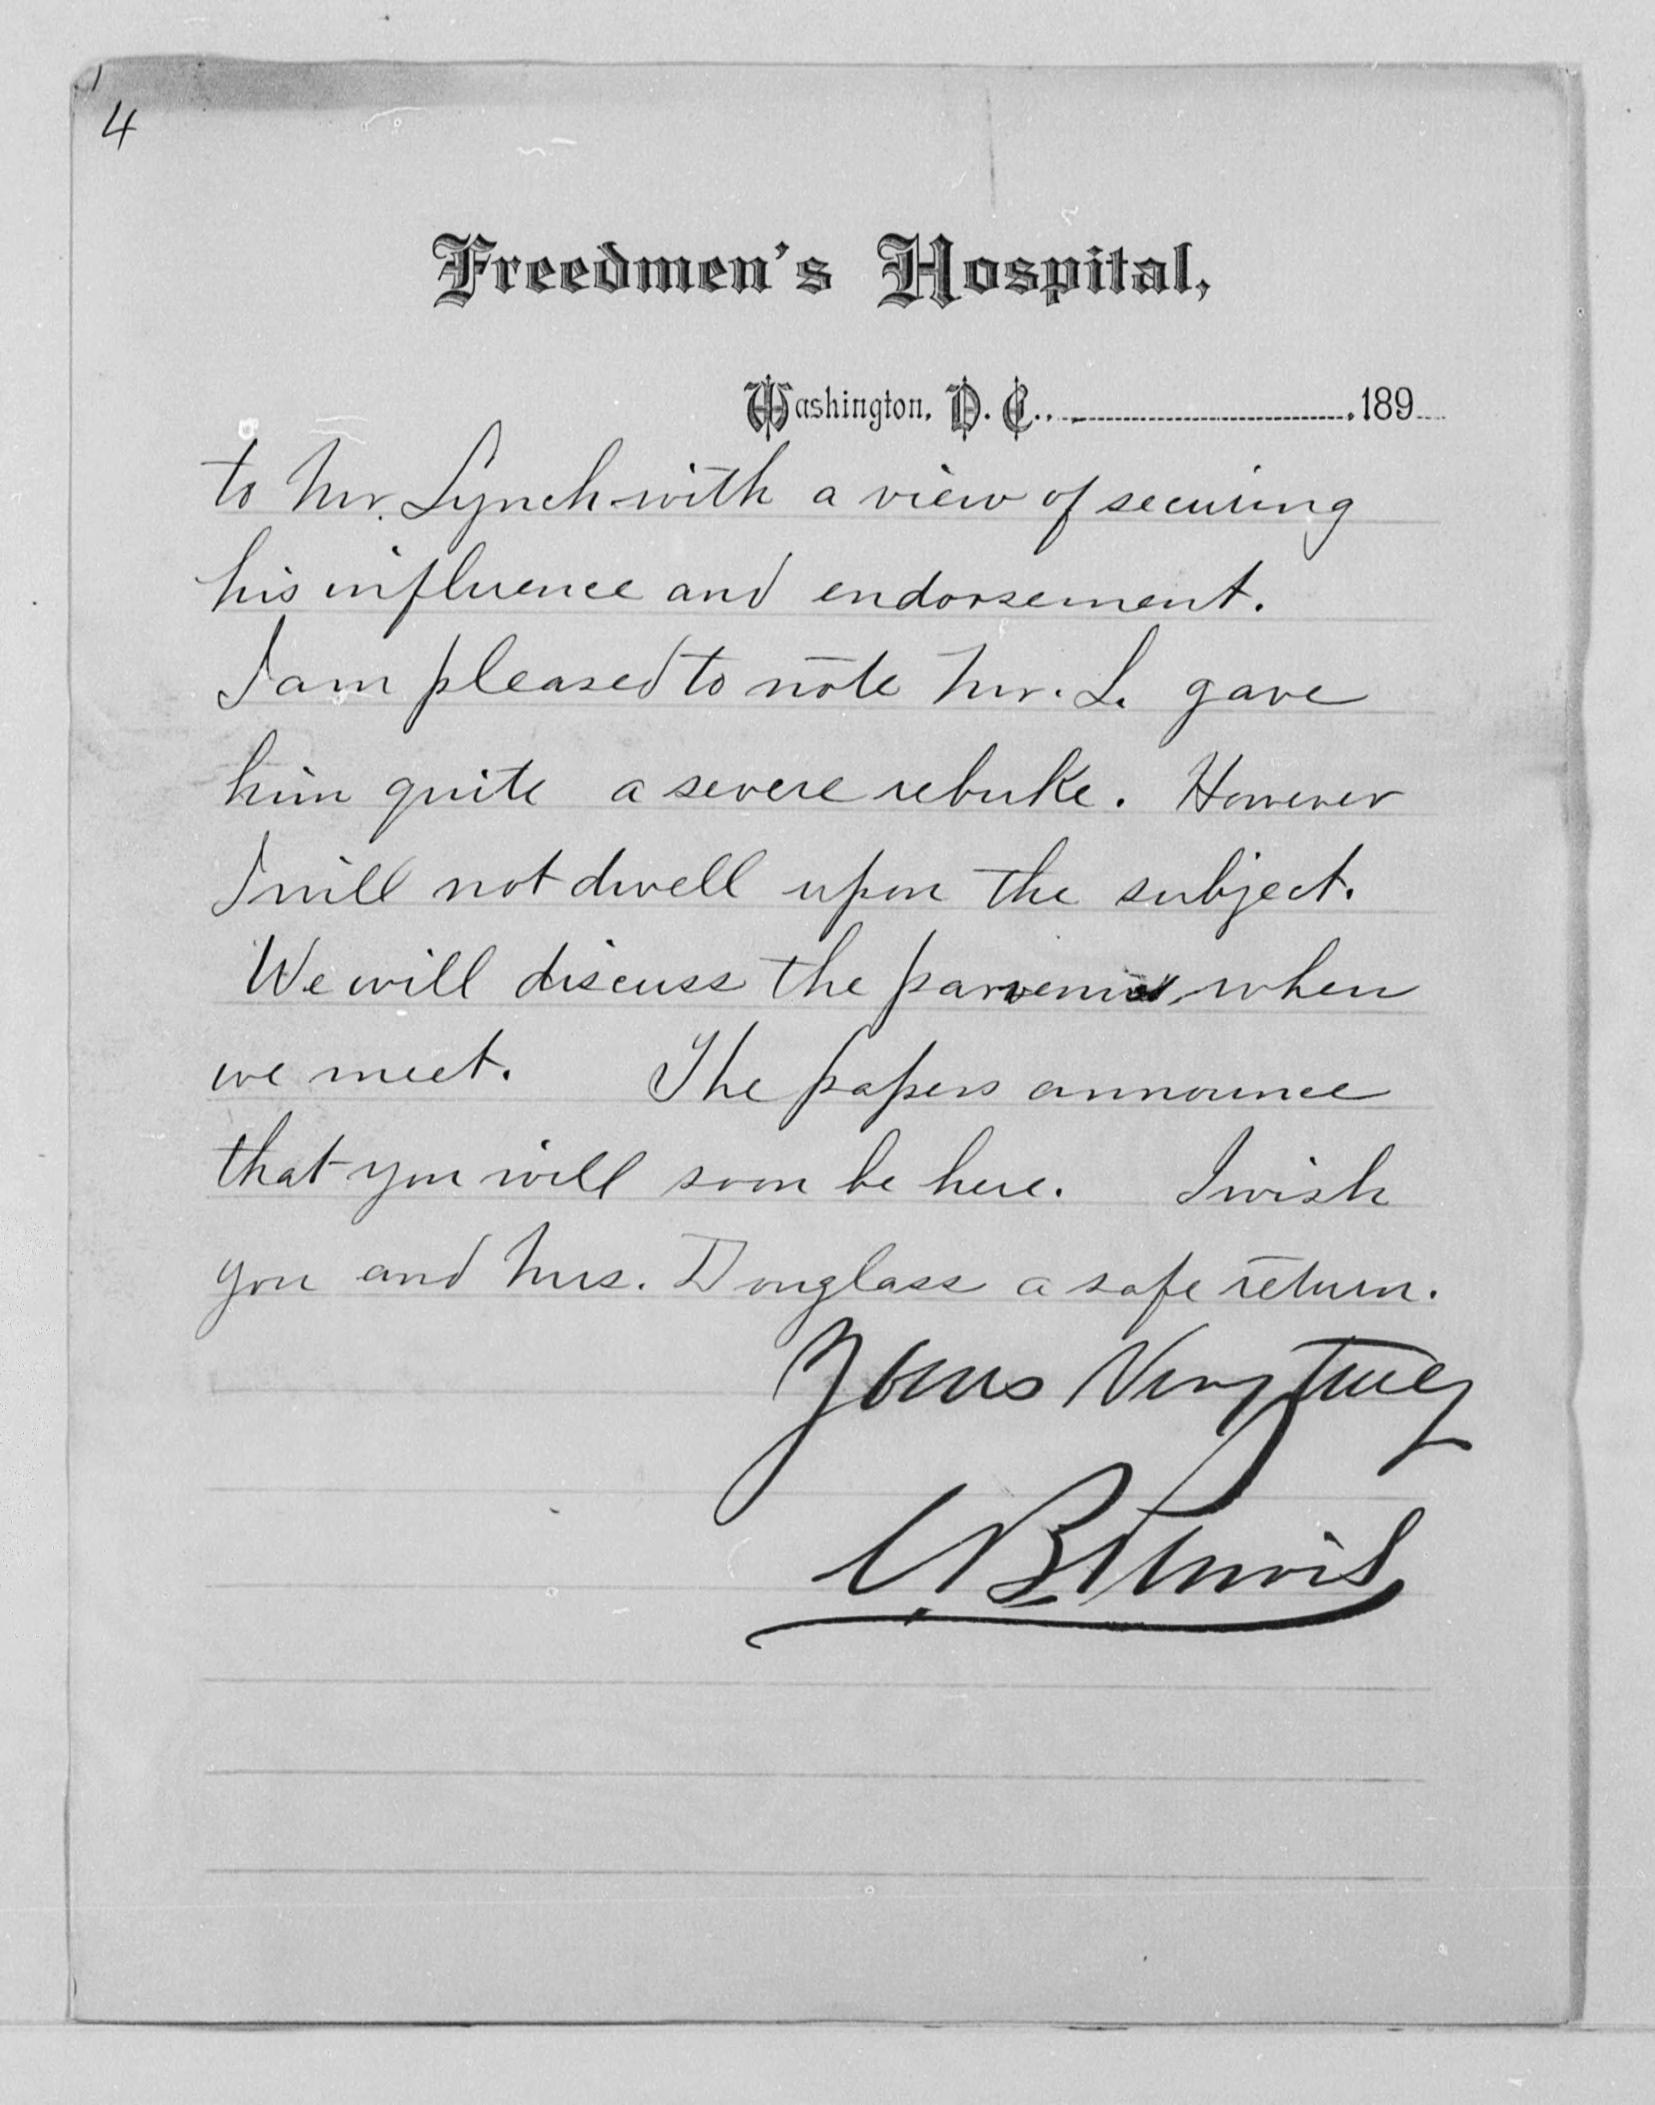 4
Freedmen's Hospital,
Washington, D. C., 189
to Mr. Lynch with a view of securing
his influence and endorsement.
I am pleased to note Mr. L. gave
him quite a severe rebuke. However
I will not dwell upon the subject.
We will discuss the when
we meet. The papers announce
that you will soon be here. I wish
you and Mrs. Douglass a safe return.
Yours Very Truly
C B Purvis